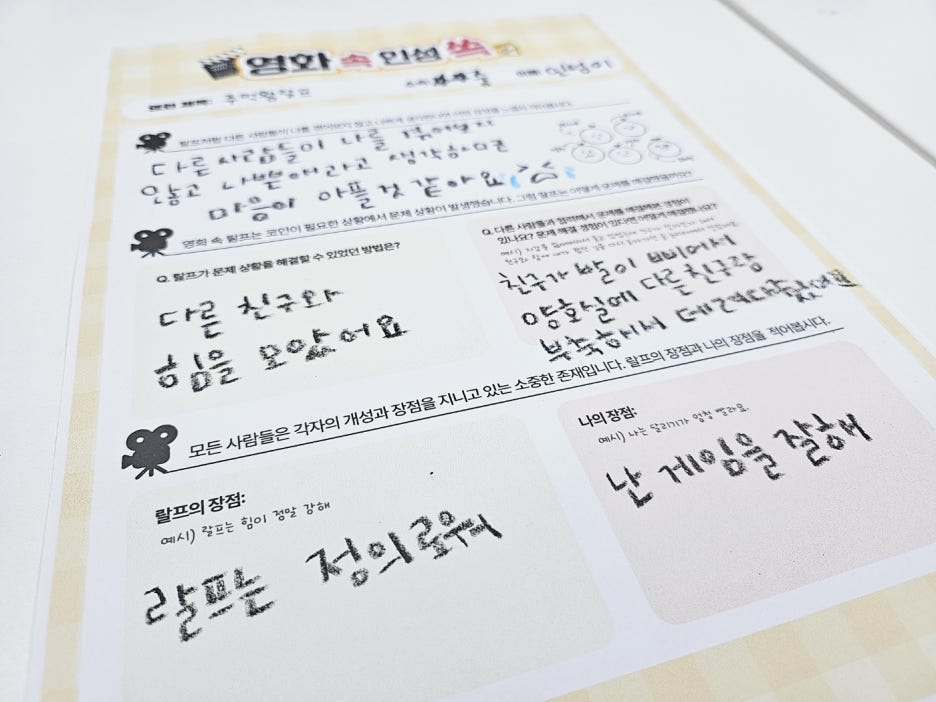 영화 속 인성 쏙
주먹왕랄프
다른 사람들이 나를 믿어주지
않고 나쁜애라고 생각하면
마음이 아플것 같아요
영화 속 랄프는 코인이 필요한 상황에서 문제 상황이 발생했습니다. 그럼 랄프는 어떻게 문제를 해결했을까요?
Q. 랄프가 문제 상황을 해결할 수 있었던 방법은?
다른 친구와
힘을 모았어요
Q. 다른 사람들과 협력해서 문제를 해결해본 경험이
있나요? 문제 해결 경험이 있다면 어떻게 해결했나요?
친구가 발이 삐어서
양호실에 다른친구랑
부축해서 데려다줬어요
모든 사람들은 각자의 개성과 장점을 지니고 있는 소중한 존재입니다. 랄프의 장점과 나의 장점을 적어봅시다.
랄프의 장점:
예시) 랄프는 힘이 정말 강해
랄프는 정의로워
나의 장점:
예시) 나는 달리기가 엄청 빨라요.
난 게임을 잘해